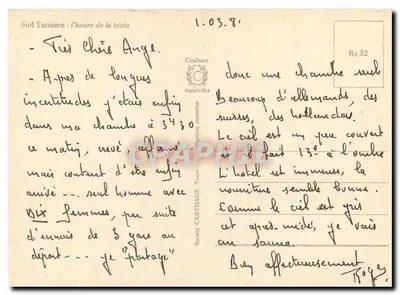 Sud Tunisien : l'heure de la tétée
1.03.8
- Très Chère Ange.
- Après de longues
incertitudes j'étais enfin
dans ma chambre à 3H30
ce matin, nevé affamé
mais content d'être enfin
arrivé... seul homme avec
DIX femmes, par suite
d'ennuis de 3 gars au
départ... je "partage"
Couleurs
C
naturelles
Société CARTHAGE
Rs 32
donc une chambre seul
Beaucoup d'allemands, des
suisses, des hollandais.
Le ciel est un peu couvert
et il fait 13° à l'ombre
L'hôtel est immense, la
nourriture semble bonne.
Comme le ciel est gris
cet après-midi, je vais
au sauna.
Bien affectueusement
Roger
CPArama.com